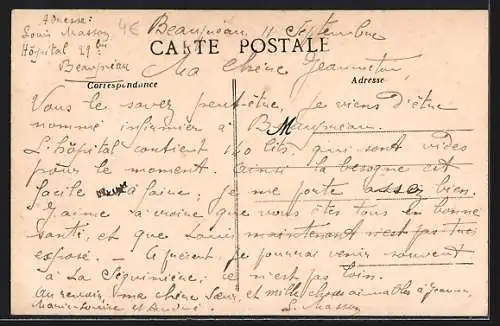 Adresse:
Louis Masson
Hôpital 29 bis
Beaupréau
4€
Beaupréau, 11 Septembre
CARTE POSTALE
Ma chère Jeannette,
Correspondance
Adresse
Vous le savez peut-être, je viens d'être
nommé infirmier à Beaupréau.
L'hôpital contient 140 lits, qui sont vides
pour le moment. Ainsi la besogne est
facile à faire; je me porte assez bien.
J'aime à croire que vous êtes tous en bonne
santé, et que Louis maintenant n'est pas très
exposé. — à présent, je pourrai venir souvent
à La Séguinière; ce n'est pas loin.
Au revoir, ma chère Sœur, et mille choses aimables à Jeanne,
Marie-Louise et André. L. Masson